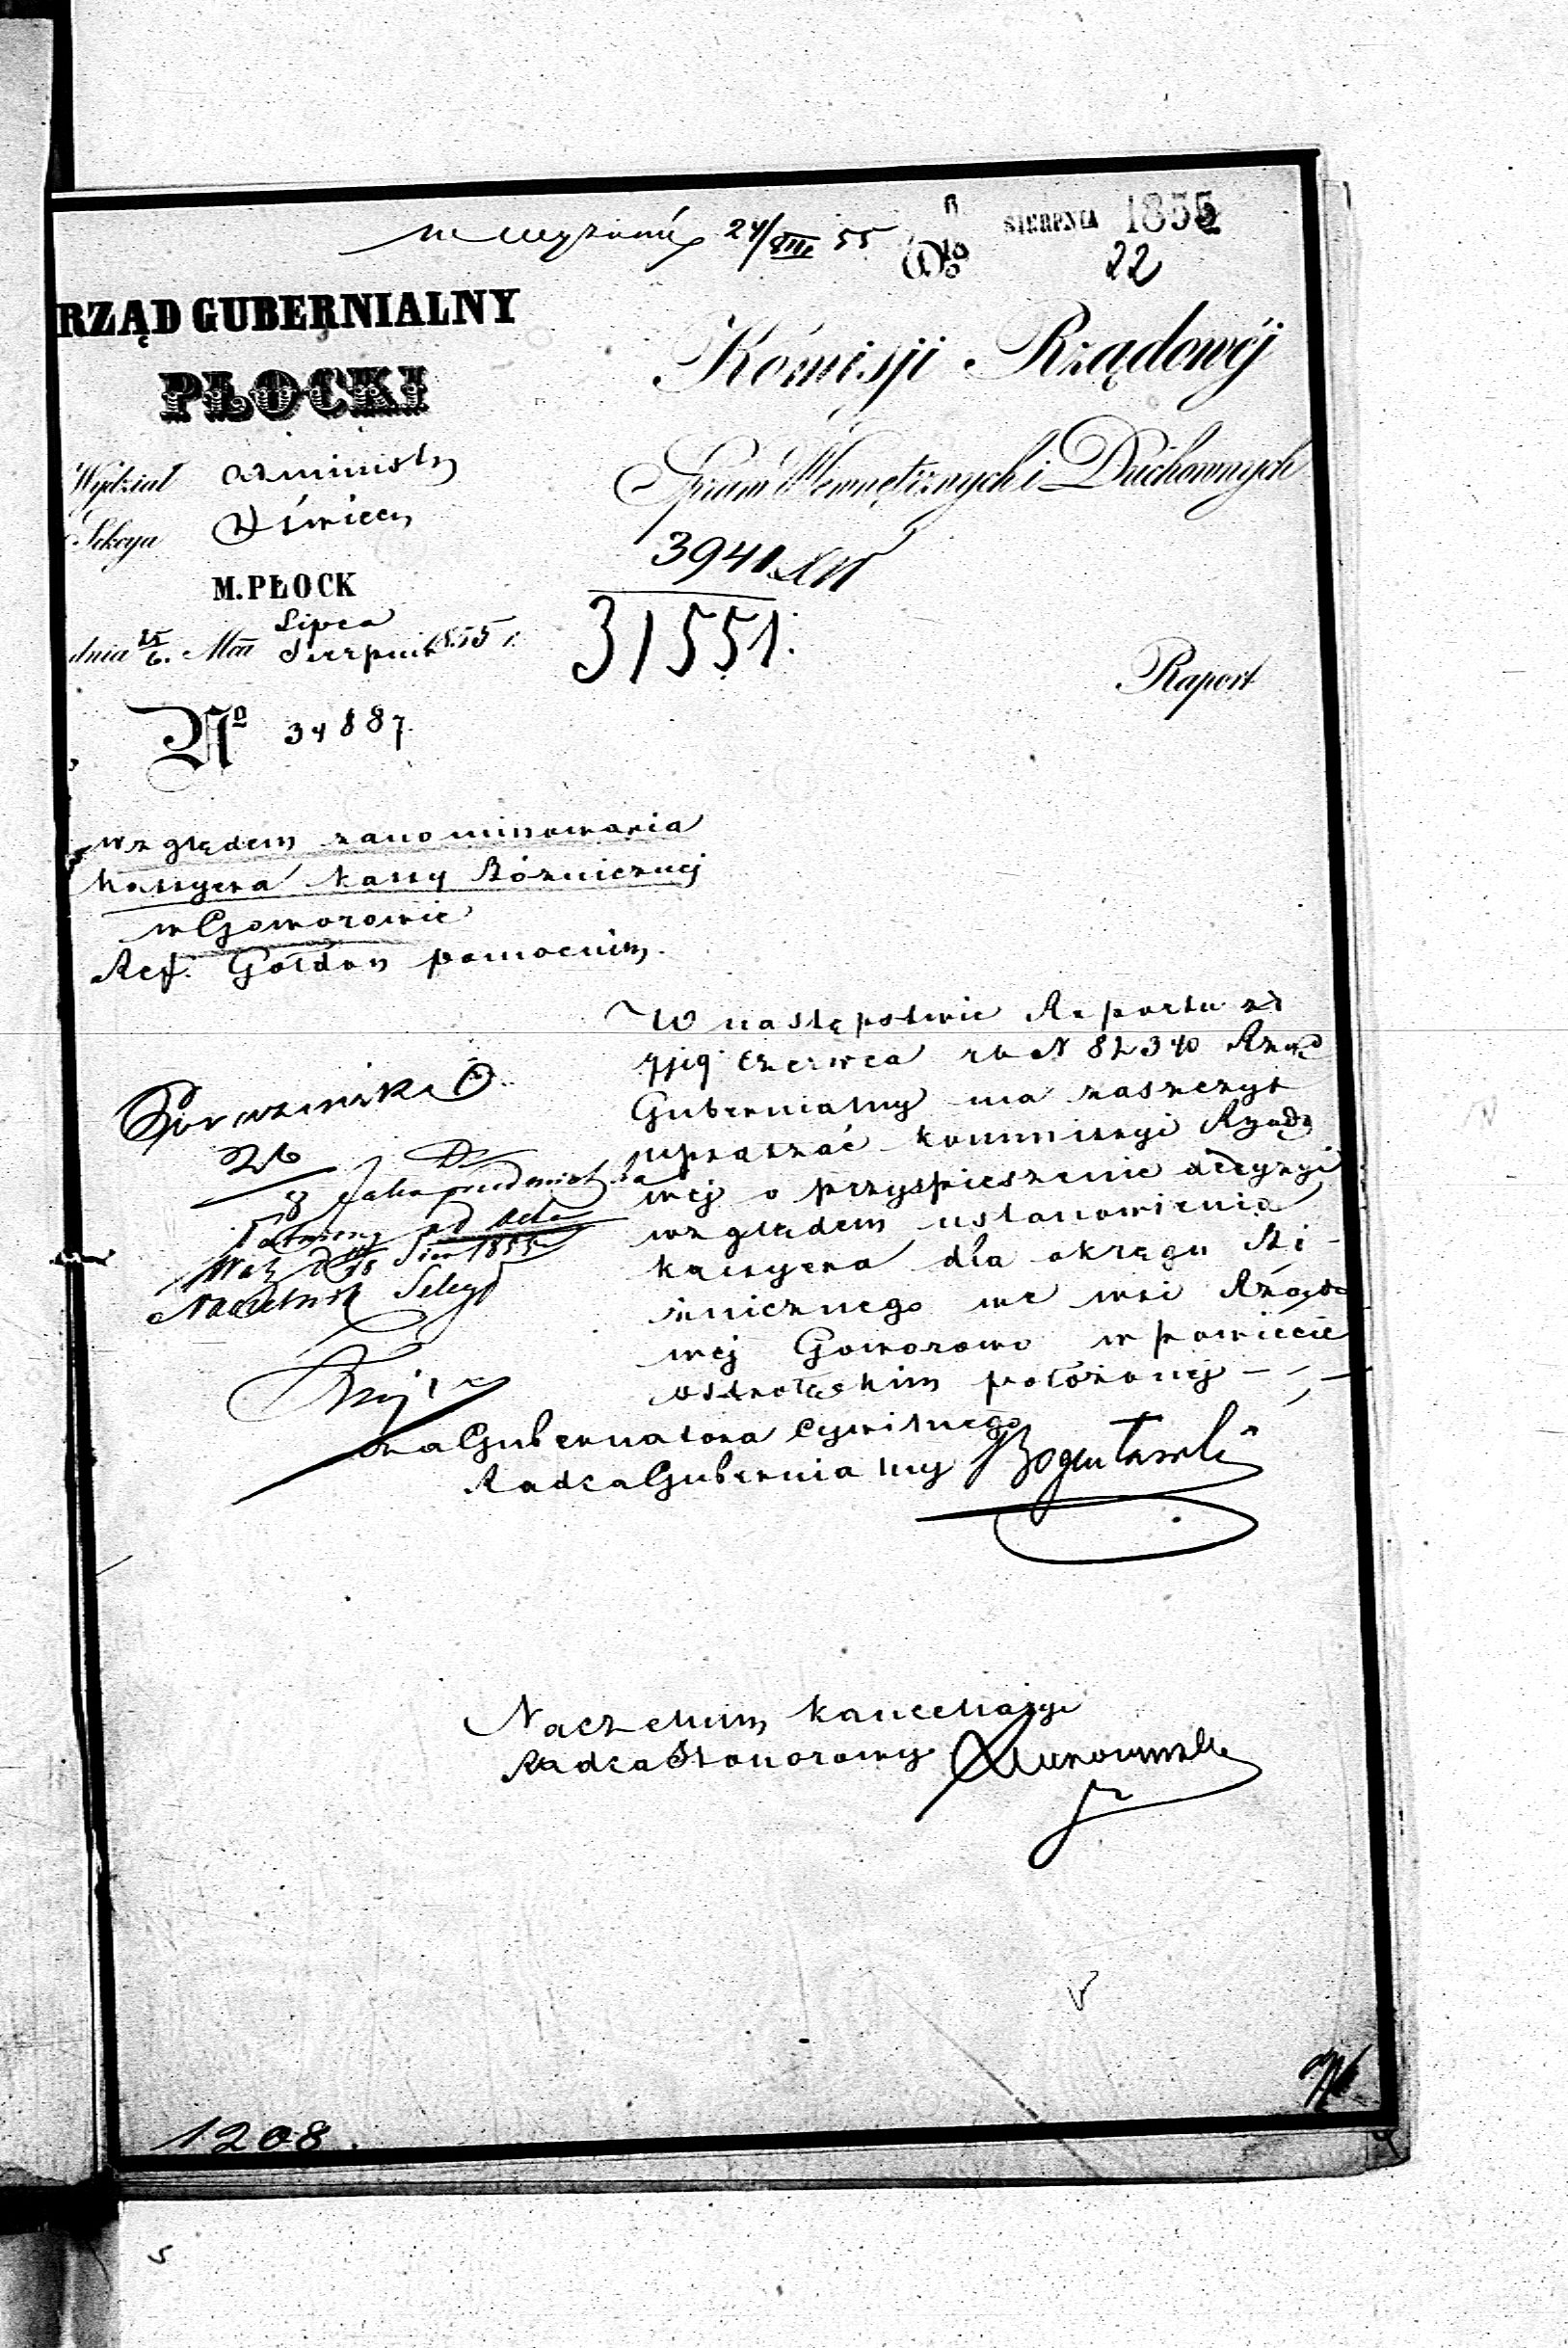 24/VIII 55
SIERPNIA 1855
22
RZĄD GUBERNIALNY
PŁOCKI
Wydział Administr
Sekcya Wświecen
M. PŁOCK
dnia 25/6. Mca Lipca Sierpnia 1855 r.
No 34887.
Komisji Rządowéj
Spraw Wewnętrznych i Duchownych
3941
31551.
Raport
względem zanominowania
kassyera kassy Bóżnicznej
w Goworowie
Ref. Gołdon pomocnik.
W następstwie Raportu z d
7/19 Czerwca rb N 82340 Rząd
Gubernialny ma zaszczyt
upraszać kommissyi Rządo
wej o przyspieszenie decyzyi
względem ustanowienia
kassyera dla okręgu Bó
żnicznego we wsi Rządo
wej Goworowo w powiecie
ostrołęckim położonej
26
8
ad acta
Sier 1855
Naczelnik Sekcyi
za Gubernatora Cywilnego
Radca Gubernialny Bogutski
Naczelnik kancellaryi
Radca Honorowy
1208.